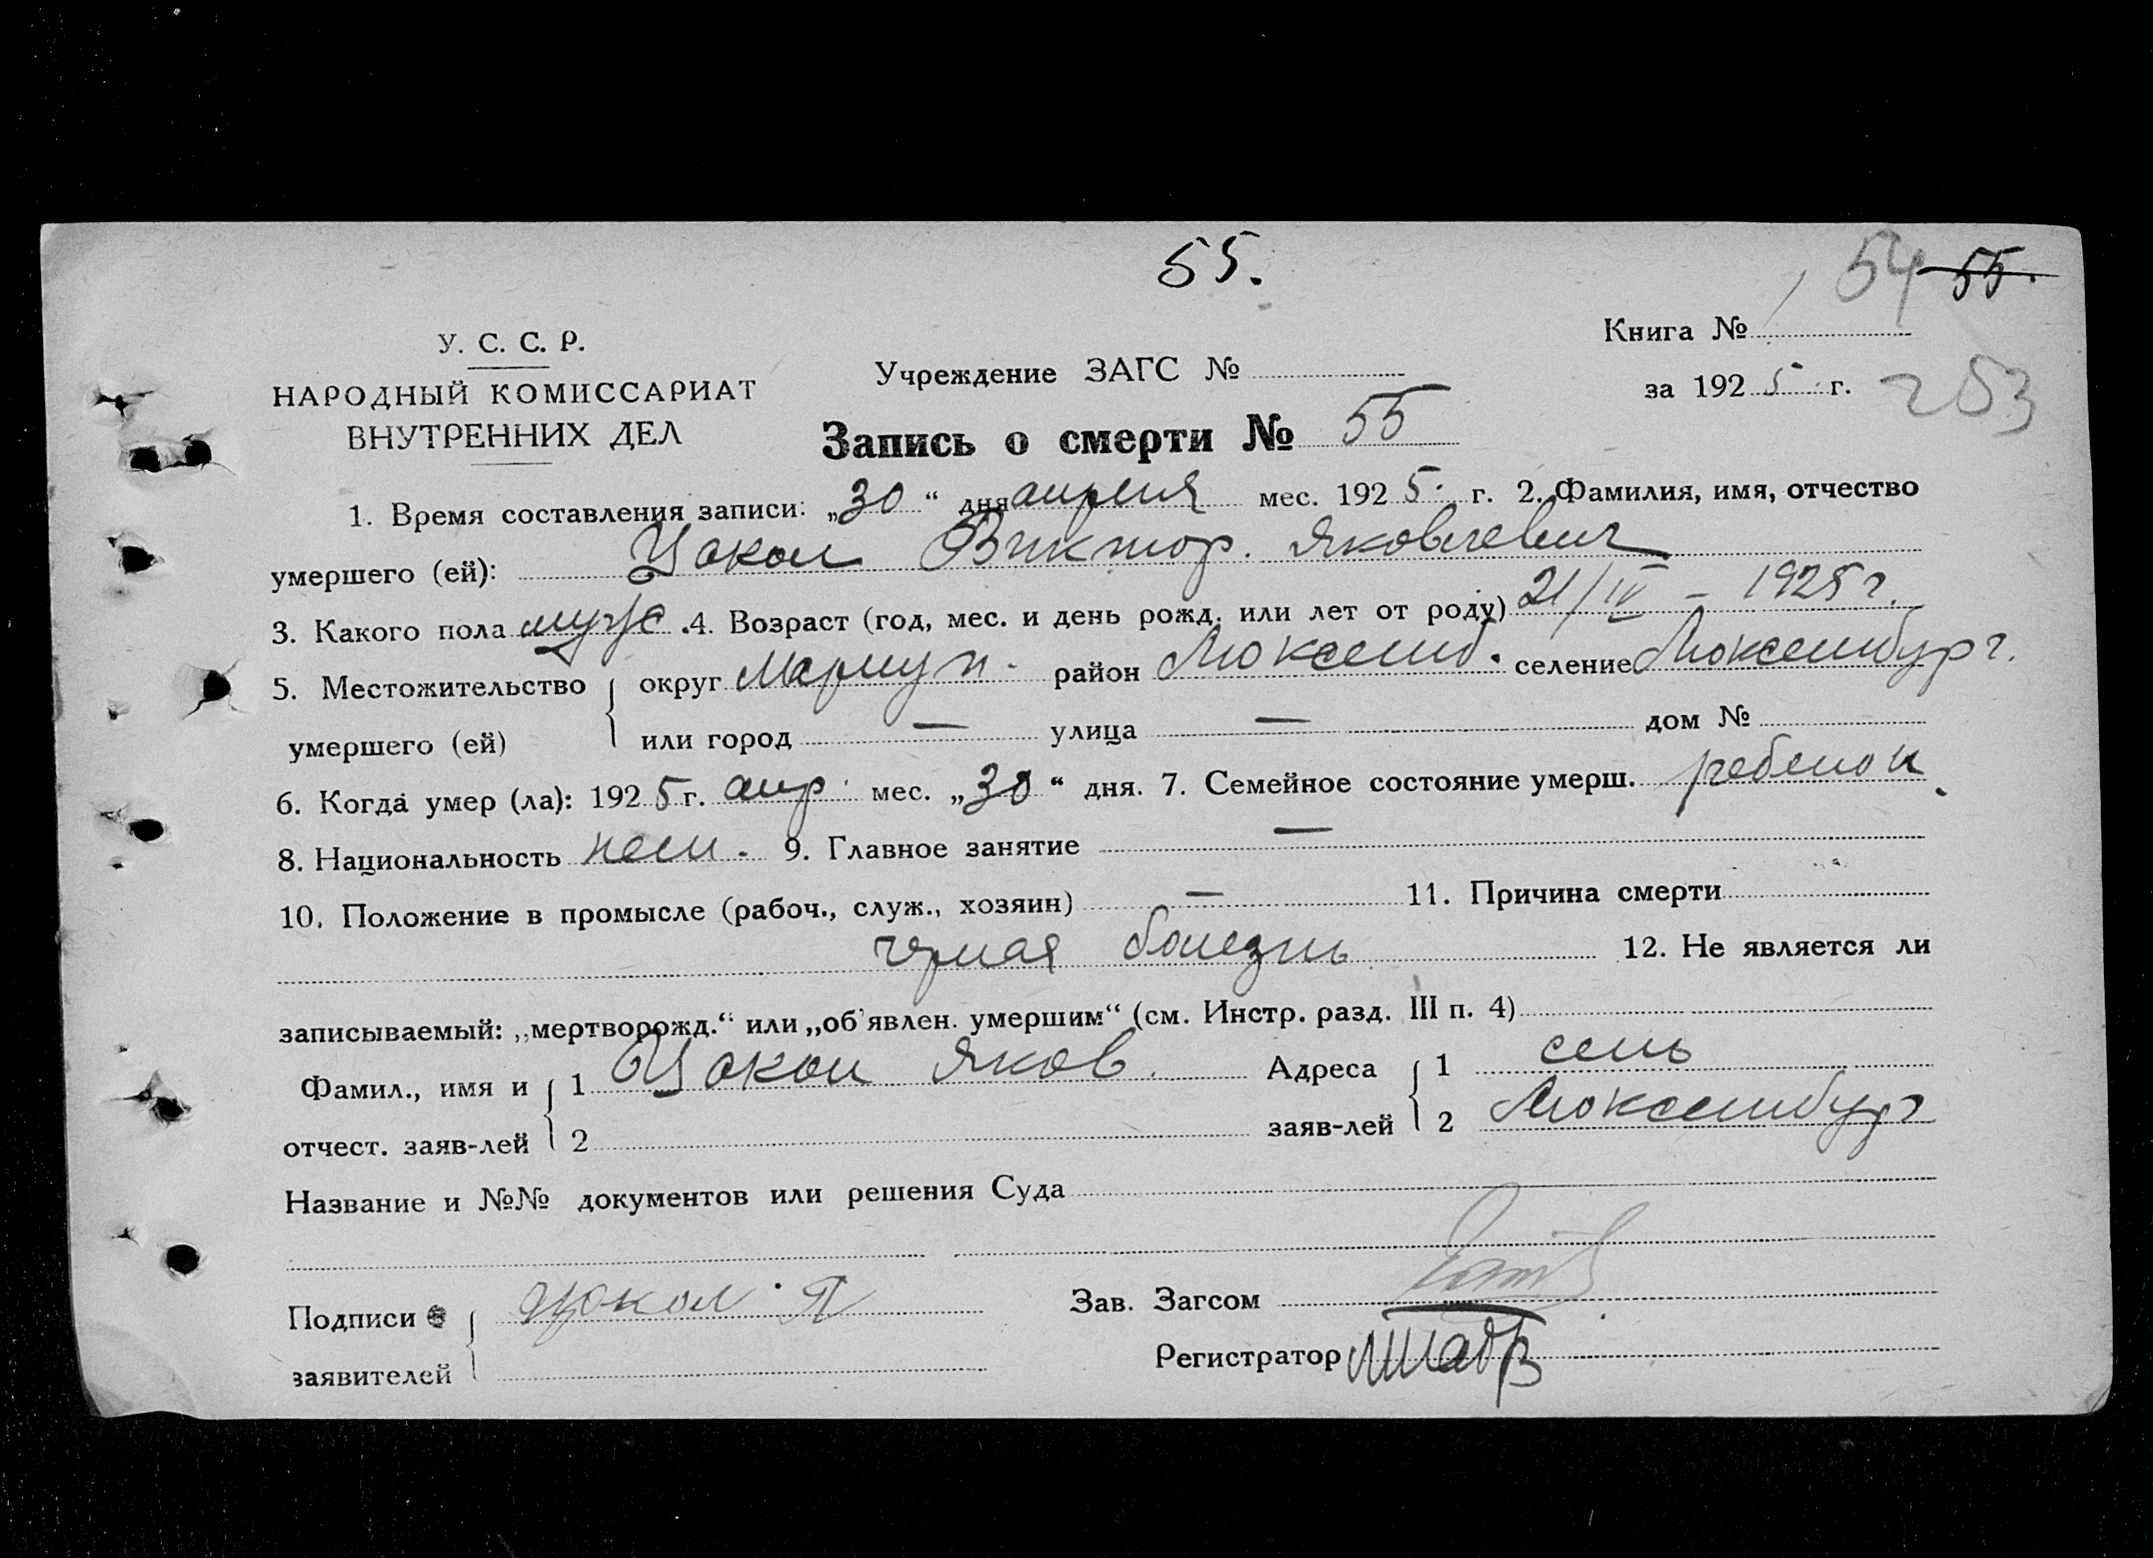 55.
54 55.
У. С. С. Р.
НАРОДНЫЙ КОМИССАРИАТ
ВНУТРЕННИХ ДЕЛ
Учреждение ЗАГС №
Книга №
за 1925 г. 253
Запись о смерти № 55
1. Время составления записи: „30“ дня апреля мес. 1925. г. 2. Фамилия, имя, отчество
умершего (ей): Цокол Виктор. Яковлевич
3. Какого пола мужс. 4. Возраст (год, мес. и день рожд. или лет от роду) 21/IV – 1925 г.
5. Местожительство умершего (ей) округ Мариуп. район Люксемб. селение Люксембург.
или город — улица — дом №
6. Когда умер (ла): 1925 г. апр. мес. „30“ дня. 7. Семейное состояние умерш. ребенок.
8. Национальность нем. 9. Главное занятие —
10. Положение в промысле (рабоч., служ., хозяин) — 11. Причина смерти
болезнь 12. Не является ли
записываемый: „мертворожд.“ или „об'явлен. умершим“ (см. Инстр. разд. III п. 4)
Фамил., имя и отчест. заяв-лей 1 Цокол Яков.
2
Адреса заяв-лей 1 село
2 Люксембург
Название и №№ документов или решения Суда
Подписи заявителей Цокол Я
Зав. Загсом
Регистратор